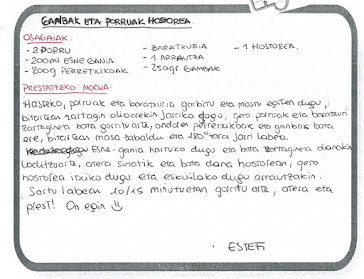 GANBAK ETA PORRUAK HOSTOREA.
OSAGAIAK:
- 2 PORRU
- 200ml ESNE GAINA
- 200g PERRETXIKOAK
- BARATXURIA
- 1 ARRAUTZA
- 250gr GAMBAK
- 1 HOSTOREA.
PRESTATZEKO MODUA:
Hasteko, porruak eta baratxuria garbitu eta moztu egiten dugu,
bitartean zartagin olioarekin jarriko dugu, gero porruak eta baratxuri
zartaginera bota gorritu arte, ondoren perretxikoak eta ganbak bota
ere, bitartean masa zabaldu eta 180°tara jarri labea.
Esne-gaina hartuko dugu eta bota zartaginera danak
loditzuarte, atera sutatik eta bota dana hostorean, gero
hostorea itxiko dugu eta eskuilako dugu arrautzakin.
Sartu labean 10/15 minutuetan gorritu arte, atera eta
prest! On egin
· ESTEFI